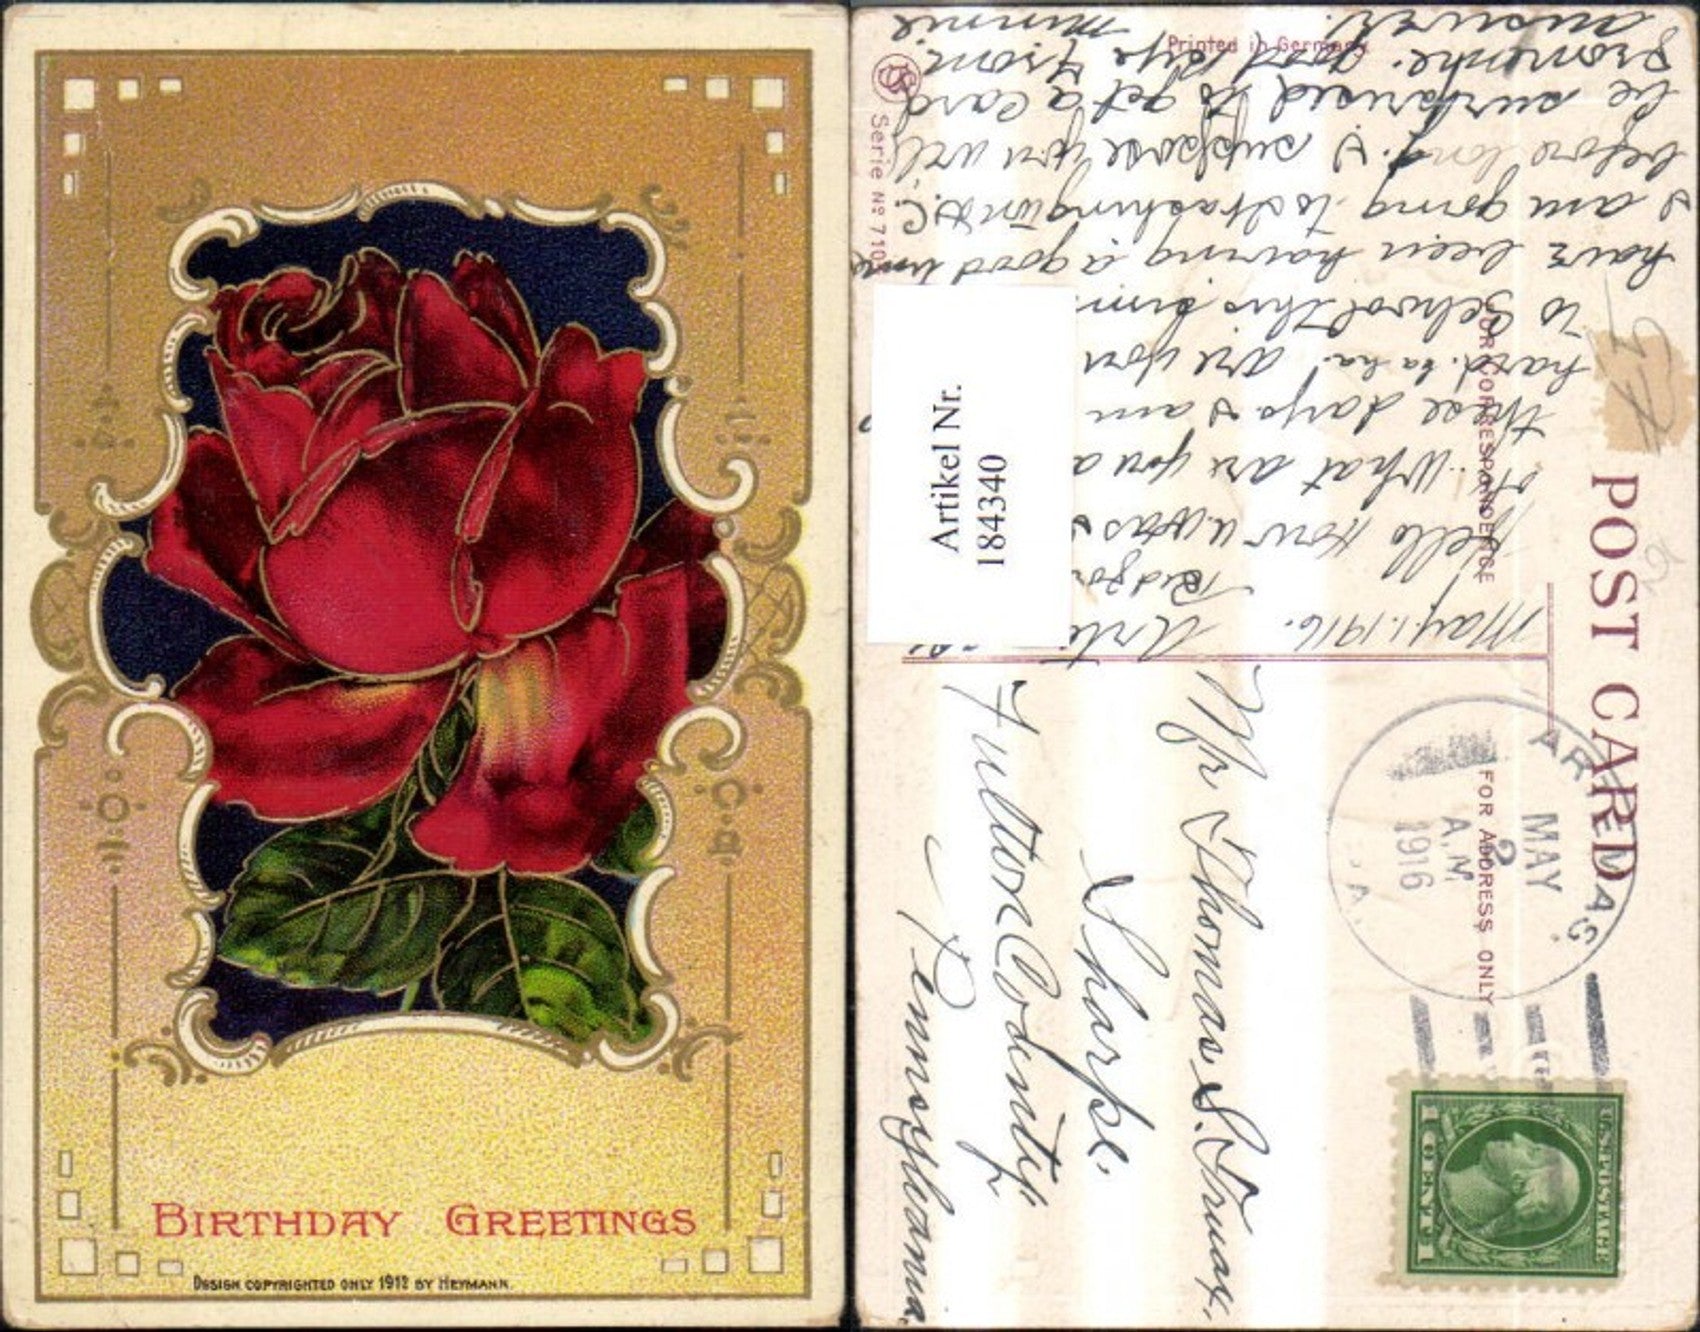 BIRTHDAY GREETINGS
DESIGN COPYRIGHTED ONLY 1912 BY HEYMANN.
POST CARD
FOR CORRESPONDENCE
FOR ADDRESS ONLY
Printed in Germany
Serie Nº 710
Artikel Nr.
184340
MAY
2
A.M.
1916
PA.
U.S. POSTAGE
1 CENT 1
Mr. Thomas S. Truax,
Sharpe.
Fulton County
Pennsylvania.
May, 1. 1916.
Hello How
What are you
these days I am
hard. ha ha. are you
to School this
have been having a good time
I am going to Washington D.C.
before long. I suppose you will
be surprised to get a card
from me. good bye From
answer. Minnie